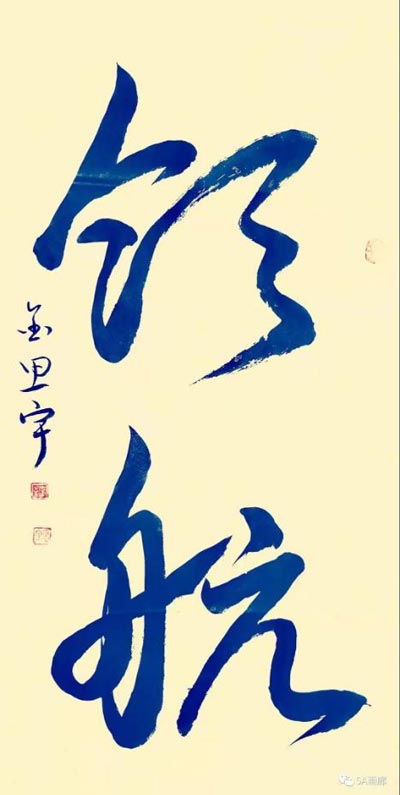 领航
金思宇
5A画廊